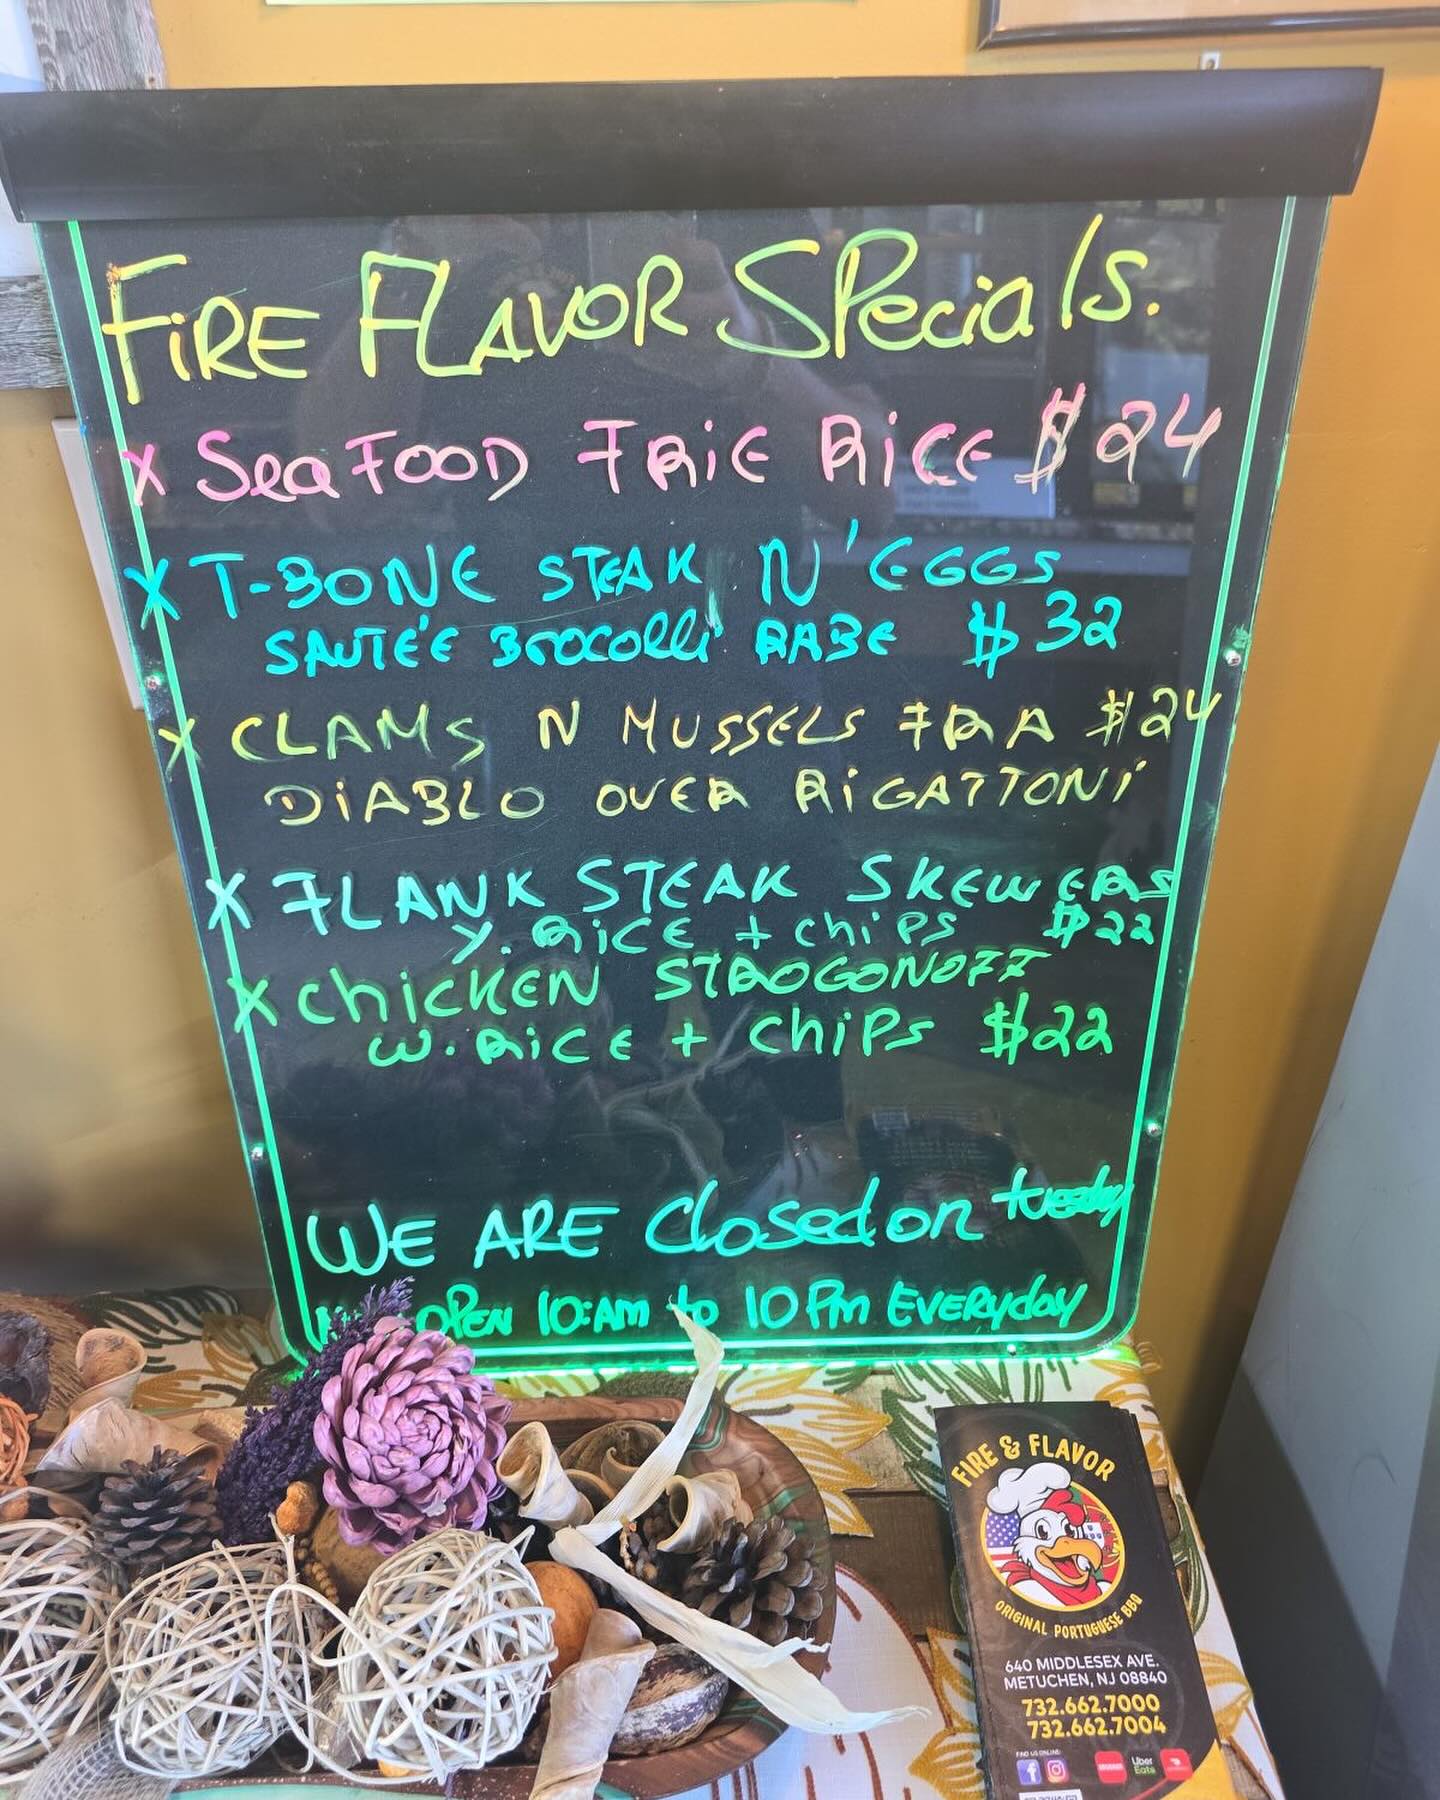 FiRE FLAVOR SPecials.
X SeaFOOD FRiE RiCE $24
X T-BONE STEAK N' EGGS
SAUTE'E Brocolli RABE $32
X CLAMS N MUSSELS FRA $24
DiABLO OVER RiGATTONi
X FLANK STEAK SKEWERS
Y. RiCE + ChiPS $22
X ChiCKEN STROGONOFF
W. RiCE + ChiPS $22
WE ARE Closed on tuesday
OPEN 10:AM to 10PM EVERYday
FIRE & FLAVOR
ORIGINAL PORTUGUESE BBQ
640 MIDDLESEX AVE.
METUCHEN, NJ 08840
732.662.7000
732.662.7004
FIND US ONLINE:
Uber
Eats